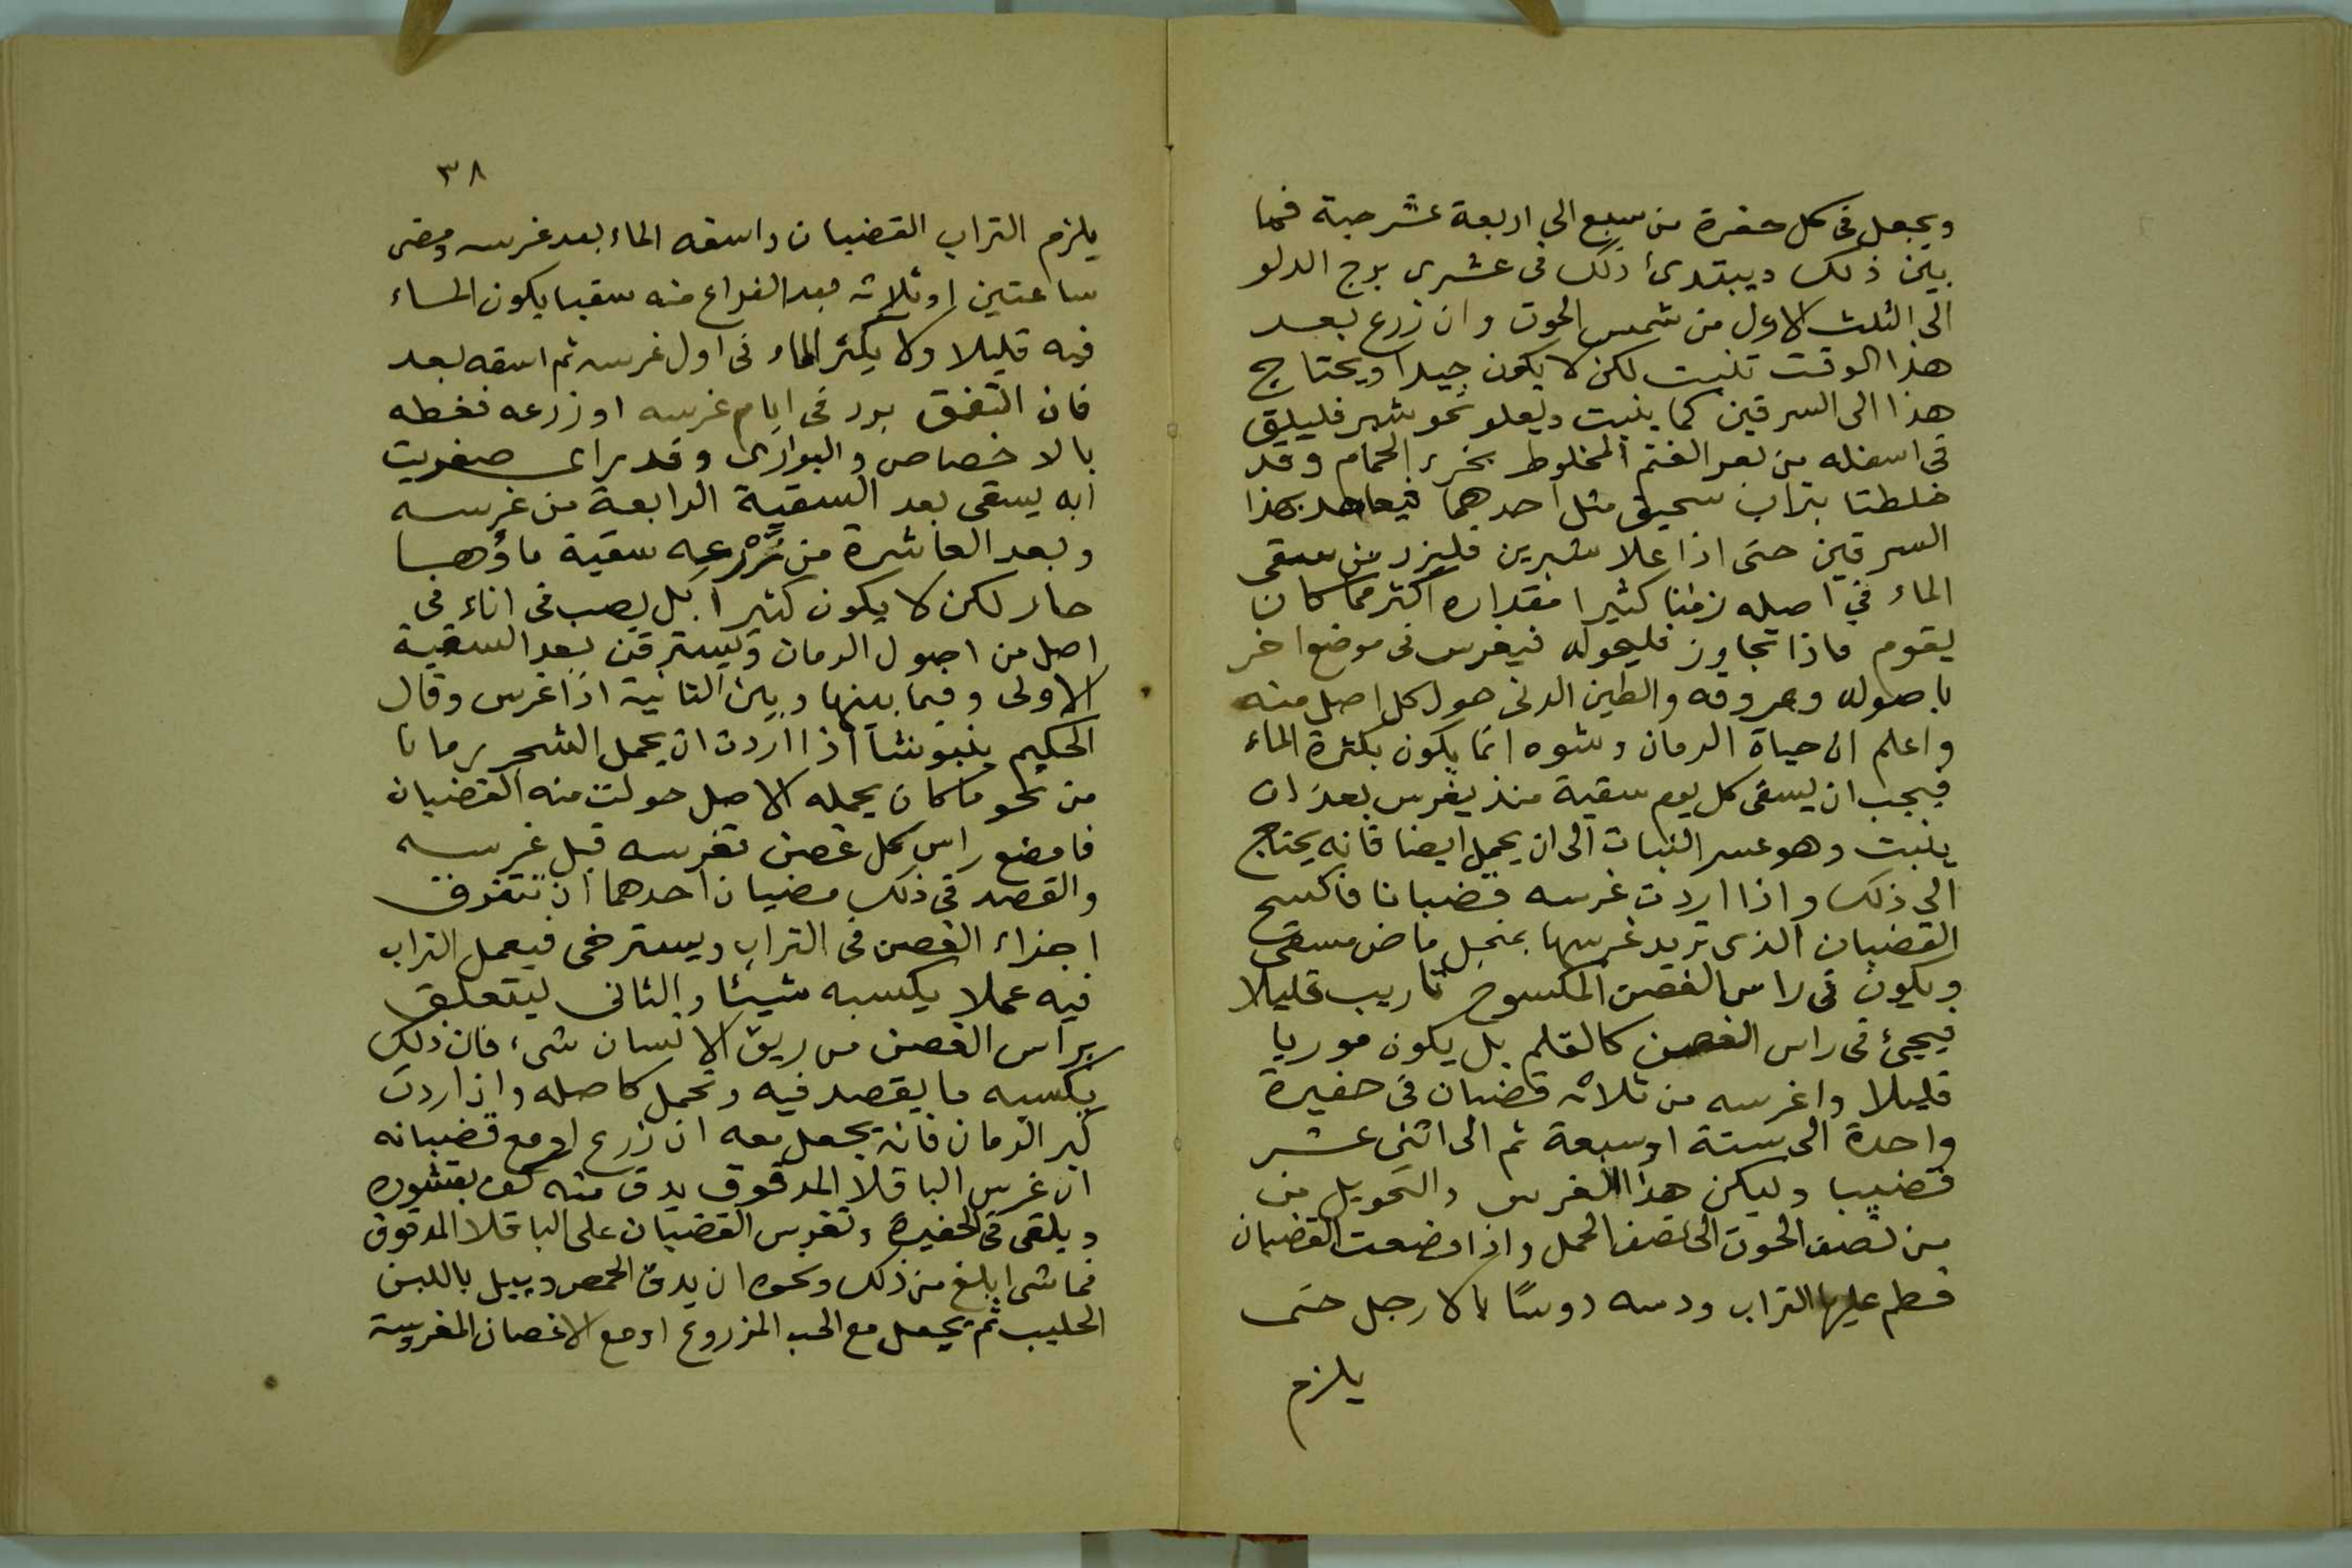 ويجعل فى كل حفرة من سبع الى اربعة عشر حبة فما
بين ذلك ويبتدئ ذلك فى عشرى برج الدلو
الى الثلث الاول من شمس الحوت وان زرع بعد
هذا الوقت تنبت لكن لا يكون جيدا ويحتاج
هذا الى السرقين كما ينبت ويعلو نحو شبر فليلق
فى اسفله من بعر الغنم المخلوط بخرء الحمام وقد
خلطتا بتراب سحيق مثل احدهما فيعاهد بهذا
السرقين حتى اذا علا شبرين فليزد من سقى
الماء فى اصله زمنا كثيرا مقداره اكثر مما كان
يقوم فاذا تجاوز فليحوله فيغرس فى موضع اخر
باصوله وعروقه والطين الذى حول كل اصل منه
واعلم ان حياة الرمان ونشوه انما يكون بكثرة الماء
فيجب ان يسقى كل يوم سقية منذ يغرس بعد ان
ينبت وهو عسر النبات الى ان يحمل ايضا فانه يحتاج
الى ذلك واذا اردت غرسه قضبانا فاكسح
القضبان الذى تريد غرسها بمنجل ماض مسقى
ويكون فى راس الغصن المكسوح تاريب قليلا
فيجئ فى راس الغصن كالقلم بل يكون موربا
قليلا واغرسه من ثلاثه قضبان فى حفيرة
واحدة الى ستة او سبعة ثم الى اثنى عشر
قضيبا وليكن هذا الغرس والتحويل من
من نصف الحوت الى نصف الحمل واذا وضعت القضبان
فطم عليها التراب ودسه دوسًا بالارجل حتى
يلزم
٣٨
يلزم التراب القضبان واسقه الماء بعد غرسه ومضى
ساعتين او ثلاثه بعد الفراغ منه سقيا يكون الماء
فيه قليلا ولا يكثر الماء فى اول غرسه ثم اسقه بعد
فان اتفق برد فى ايام غرسه او زرعه فغطه
بالاخصاص والبوارى وقد راى صغريت
انه يسقى بعد السقية الرابعة من غرسه
وبعد العاشرة من زرعه سقية ماؤها
حار لكن لا يكون كثيرا بل يصب فى اناء فى
اصل من اصول الرمان بعد السقية
الاولى وفيما بينها وبين الثانية اذا غرس وقال
الحكيم ينبوشا اذا اردت ان يحمل الشجر رمانا
من نحو ما كان يحمله الاصل حولت منه القضبان
فامضع راس كل غصن تغرسه قبل غرسه
والقصد فى ذلك احدهما ان تتفرق
اجزاء الغصن فى التراب ويسترخى فيعمل التراب
فيه عملا يكسبه شيئا والثانى ليتعلق
براس الغصن من ريق الانسان شىء فان ذلك
يكسبه ما يقصد فيه وتحمل كاصله واذ اردت
كبر الرمان فانه يجعل معه ان زرع او مع قضبانه
ان غرس الباقلا المدقوق يدق منه كف بقشوره
ويلقى فى الحفيرة وتغرس القضبان على الباقلا المدقوق
فما شى ابلغ من ذلك ونحوه ان يدق الحمص ويبل باللبن
الحليب ثم يجعل مع الحب المزروع او مع الاغصان المغروسة